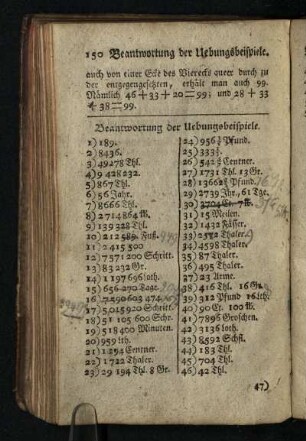 150 Beantwortung der Uebungsbeispiele.
auch von einer Ecke des Vierecks queer durch zu
der entgegengesetzten, erhält man auch 99.
Nämlich 46 + 33 + 20 = 99; und 28 + 33
+ 38 = 99.
Beantwortung der Uebungsbeispiele.
1) 189.
2) 8436.
3) 49278 Thl.
4) 9 428 232.
5) 867 Thl.
6) 56 Jahr.
7) 8666 Thl.
8) 2714864 M.
9) 139 328 Thl.
10) 212 589 Fuß.
11) 2415 500
12) 7571 200 Schritt.
13) 83 232 Gr.
14) 1 197 696 loth.
15) 656 270 Tage.
16) 7290603 474.
17) 5045920 Schritt.
18) 51 105 600 Schr.
19) 518400 Minuten.
20) 959 loth.
21) 1294 Centner.
22) 1722 Thaler.
23) 29 194 Thl. 8 Gr.
24) 956 Pfund.
25) 3333
26) 542 Centner.
27) 1731 Thl. 13 Gr.
28) 13662 Pfund.
29) 2739 Thr., 61 Tge.
30) 3704 Cr.
31) 15 Meilen.
32) 1432 Fässer.
33) 2572 Thaler.
34) 4598 Thaler.
35) 87 Thaler.
36) 495 Thaler.
37) 23 Arme.
38) 416 Thl. 16 Gr.
39) 312 Pfund 16 lth.
40) 90 Ct. 100 M.
41) 7896 Groschen.
42) 3136 loth.
43) 8592 Schfl.
44) 183 Thl.
45) 704 Thl.
46) 42 Thl.
47)